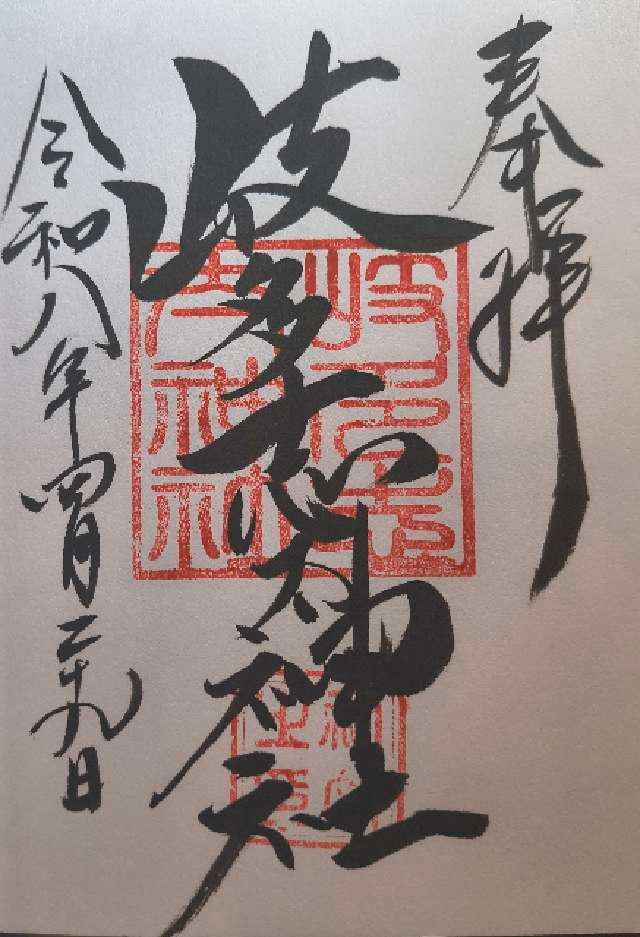 奉拝
岐多志太神社
令和八年四月二十九日